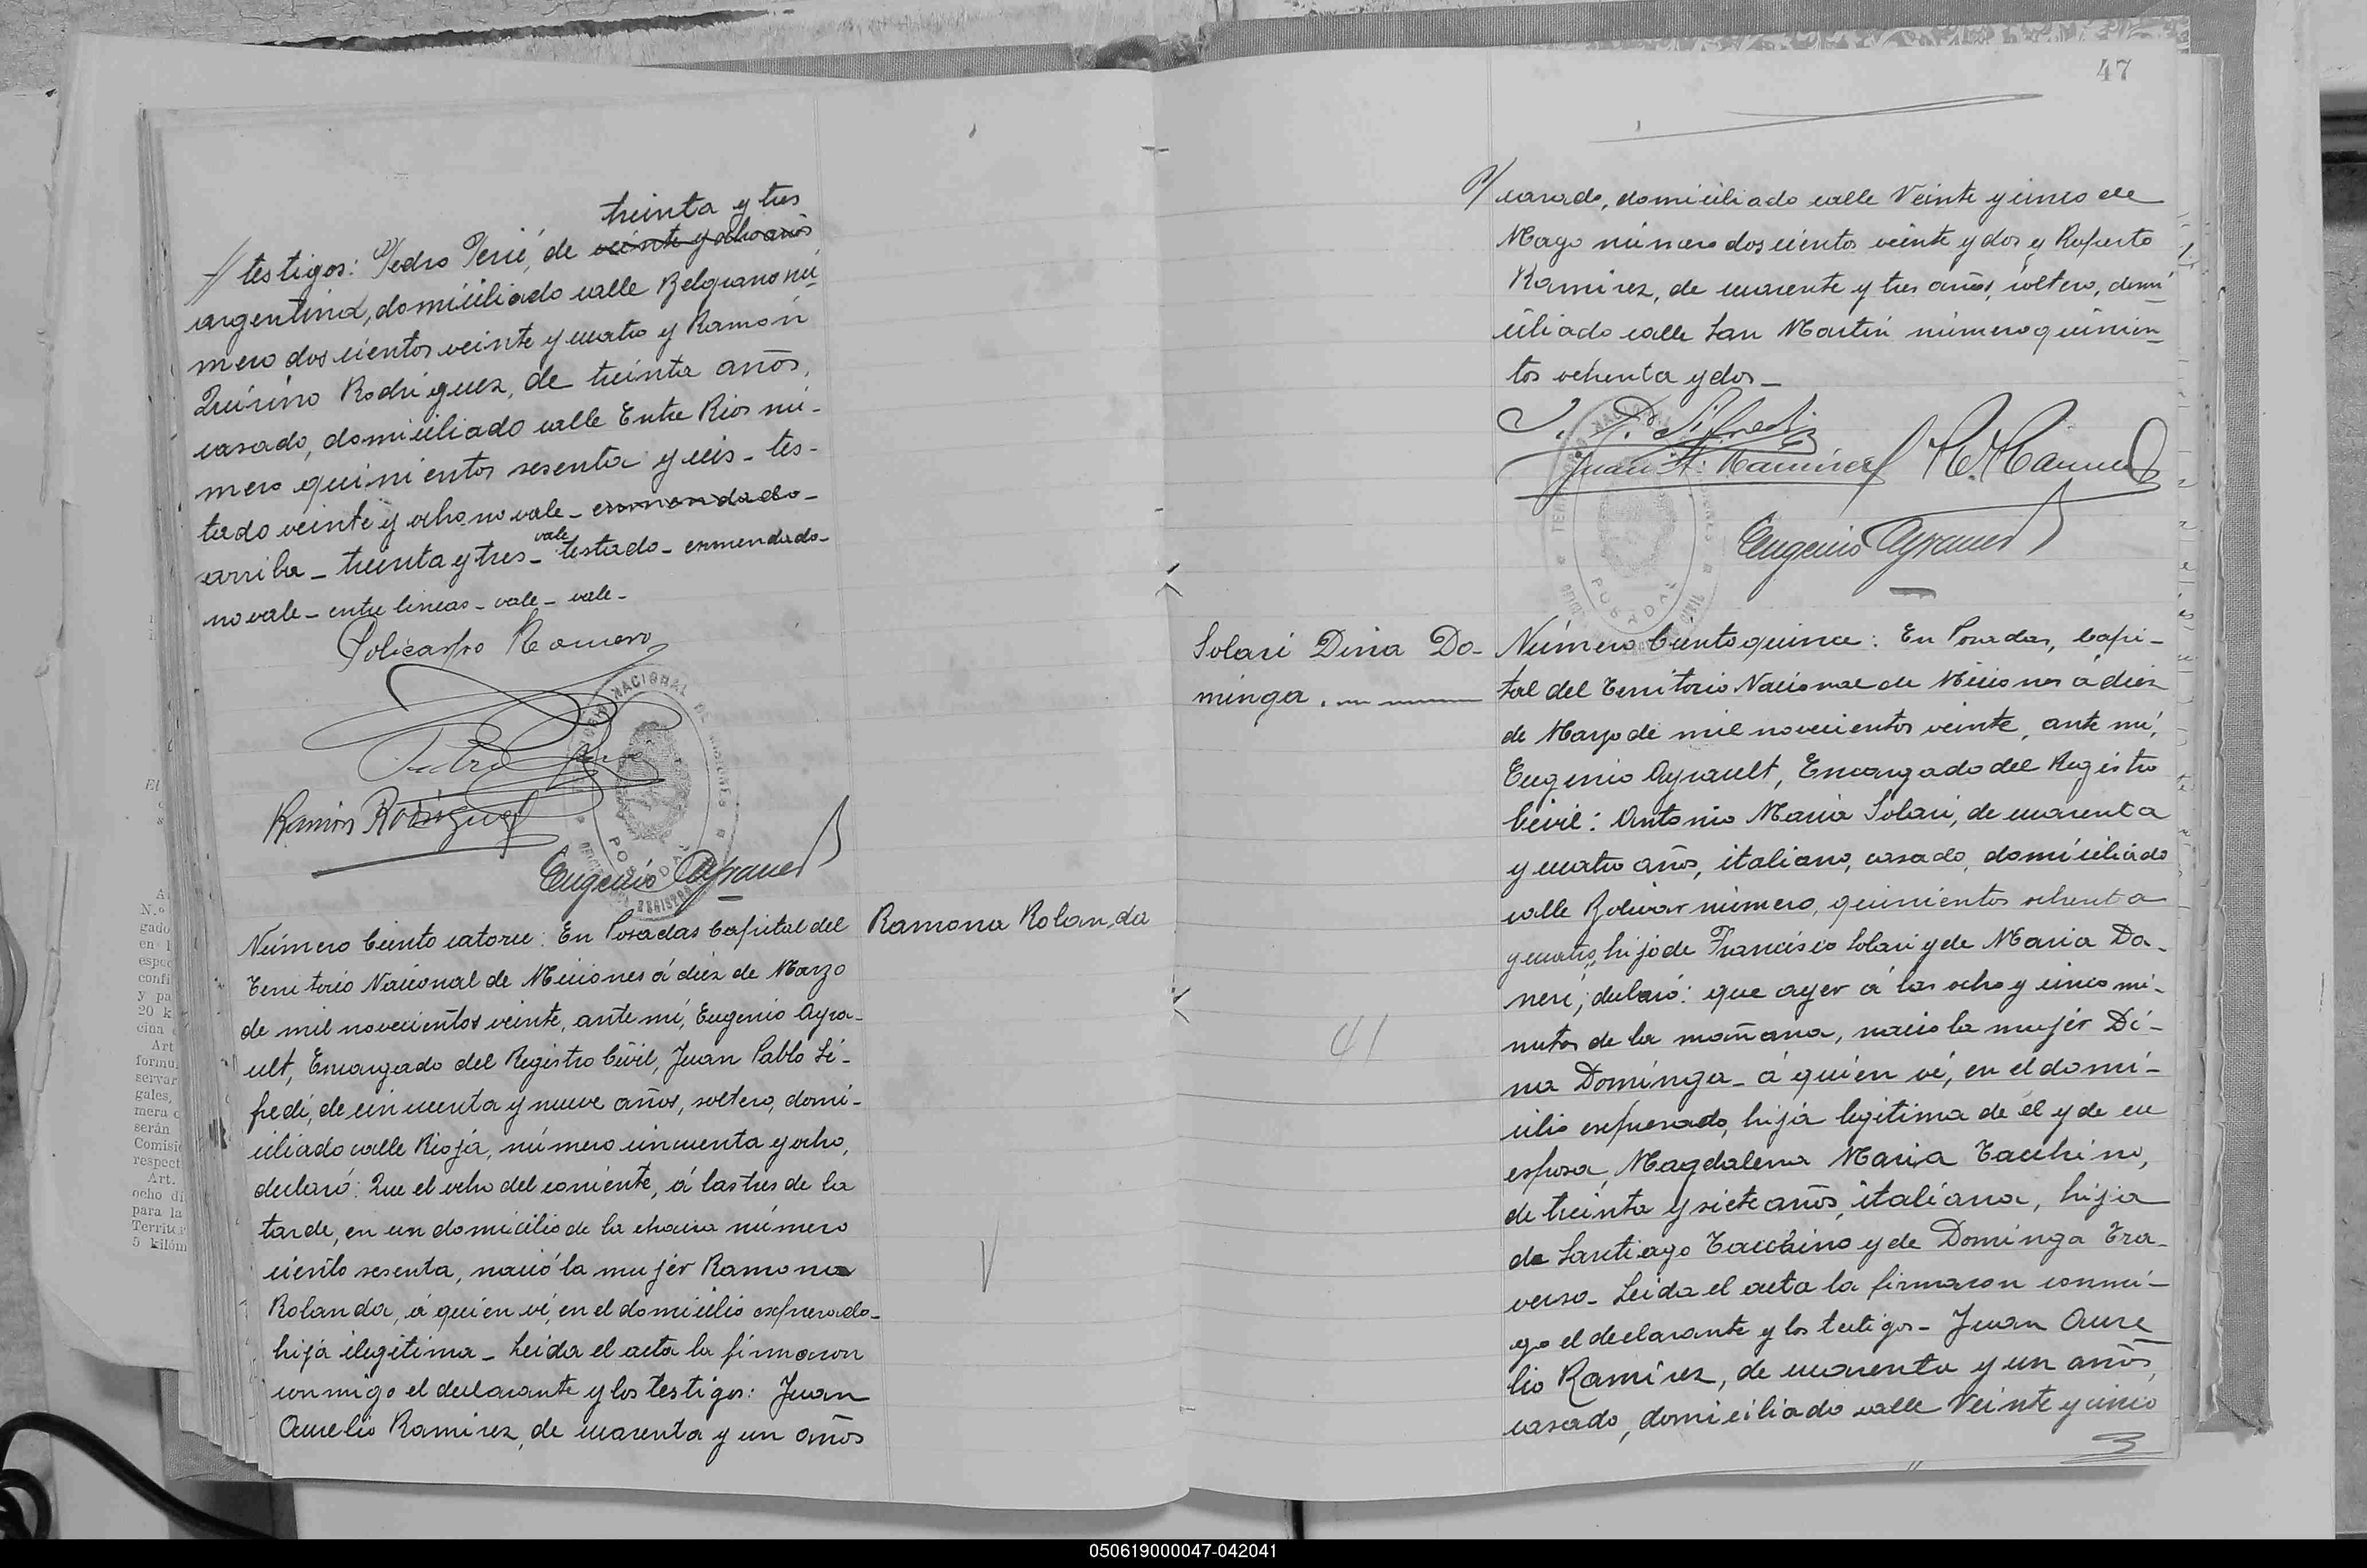 treinta y tres
// testigos: Pedro Perié, de veinte y ocho años
argentino, domiciliado calle Belgrano nú-
mero doscientos veinte y cuatro y Ramón
Quirino Rodriguez, de treinta años,
casado, domiciliado calle Entre Rios nú-
mero quinientos sesenta y seis - tes-
tado veinte y ocho no vale - enmendado -
vale
arriba - treinta y tres - testado - enmendado -
no vale - entre lineas - vale - vale -
Policarpo Romero
Pedro Perié
Ramón Rodriguez
Eugenio Ayrault
Número Ciento catorce: En Posadas Capital del
Territorio Nacional de Misiones á diez de Marzo
de mil novecientos veinte, ante mí, Eugenio Ayra-
ult, Encargado del Registro Civil, Juan Pablo Si-
fredi, de cincuenta y nueve años, soltero, domi-
ciliado calle Rioja, número cincuenta y ocho,
declaró: Que el ocho del corriente, á las tres de la
tarde, en un domicilio de la chacra número
ciento sesenta, nació la mujer Ramona
Rolanda, á quien ví, en el domicilio expresado -
hija ilegítima - Leida el acta la firmaron
conmigo el declarante y los testigos: Juan
Aurelio Ramirez, de cuarenta y un años
Ramona Rolanda
47
// casado, domiciliado calle Veinte y cinco de
Mayo número doscientos veinte y dos y Ruperto
Ramirez, de cuarente y tres años, soltero, domi-
ciliado calle San Martin número quinien-
tos ochenta y dos -
J. P. Sifredi
Juan A. Ramirez R. Ramirez
Eugenio Ayrault
Solari Dina Do-
minga.
Número Ciento quince: En Posadas, Capi-
tal del Territorio Nacional de Misiones á diez
de Marzo de mil novecientos veinte, ante mí,
Eugenio Ayrault, Encargado del Registro
Civil: Antonio Maria Solari, de cuarenta
y cuatro años, italiano, casado, domiciliado
calle Bolivar número, quinientos ochenta
y cuatro, hijo de Francisco Solari y de Maria Da-
neri; declaró: que ayer á las ocho y cinco mi-
nutos de la mañana, nació la mujer Di-
na Dominga - á quién ví, en el domi-
cilio expresado, hija legítima de él y de su
esposa, Magdalena Maria Tacchino,
de treinta y siete años, italiana, hija
de Santiago Tacchino y de Dominga Tra-
verso - Leida el acta la firmaron conmi-
go el declarante y los testigos - Juan Aure-
lio Ramirez, de cuarenta y un años,
casado, domiciliado calle Veinte y cinco
TERRITORIO NACIONAL DE MISIONES
POSADAS
050619000047-042041